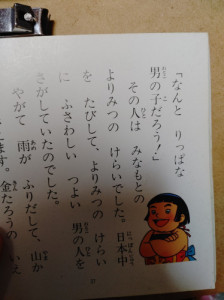 「なんと りっぱな
男の子だろう！」
その人は みなもとの
よりみつの けらいでした。日本中
を たびして、よりみつの けらい
に ふさわしい つよい 男の人を
さがしていたのでした。
やがて 雨が ふりだして、山か
ます。金たろうの いえ